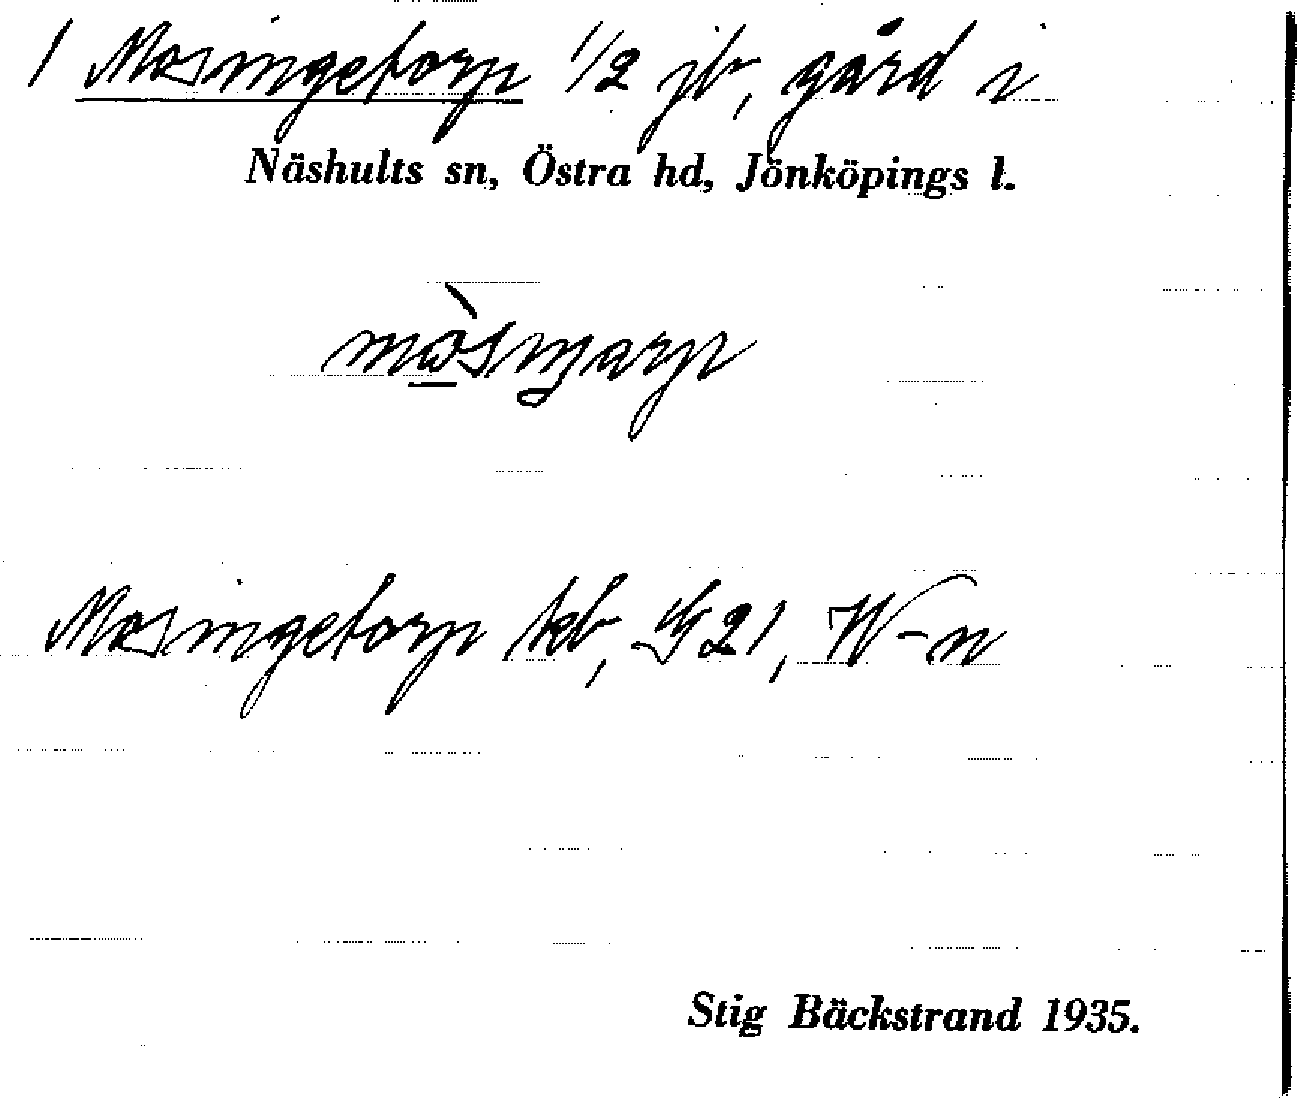 / Mosingetorp 1/2 jb, gård i
Näshults sn, Östra hd, Jönköpings l.
Mosingetorp kb, 21, W-n
Stig Bäckstrand 1935.